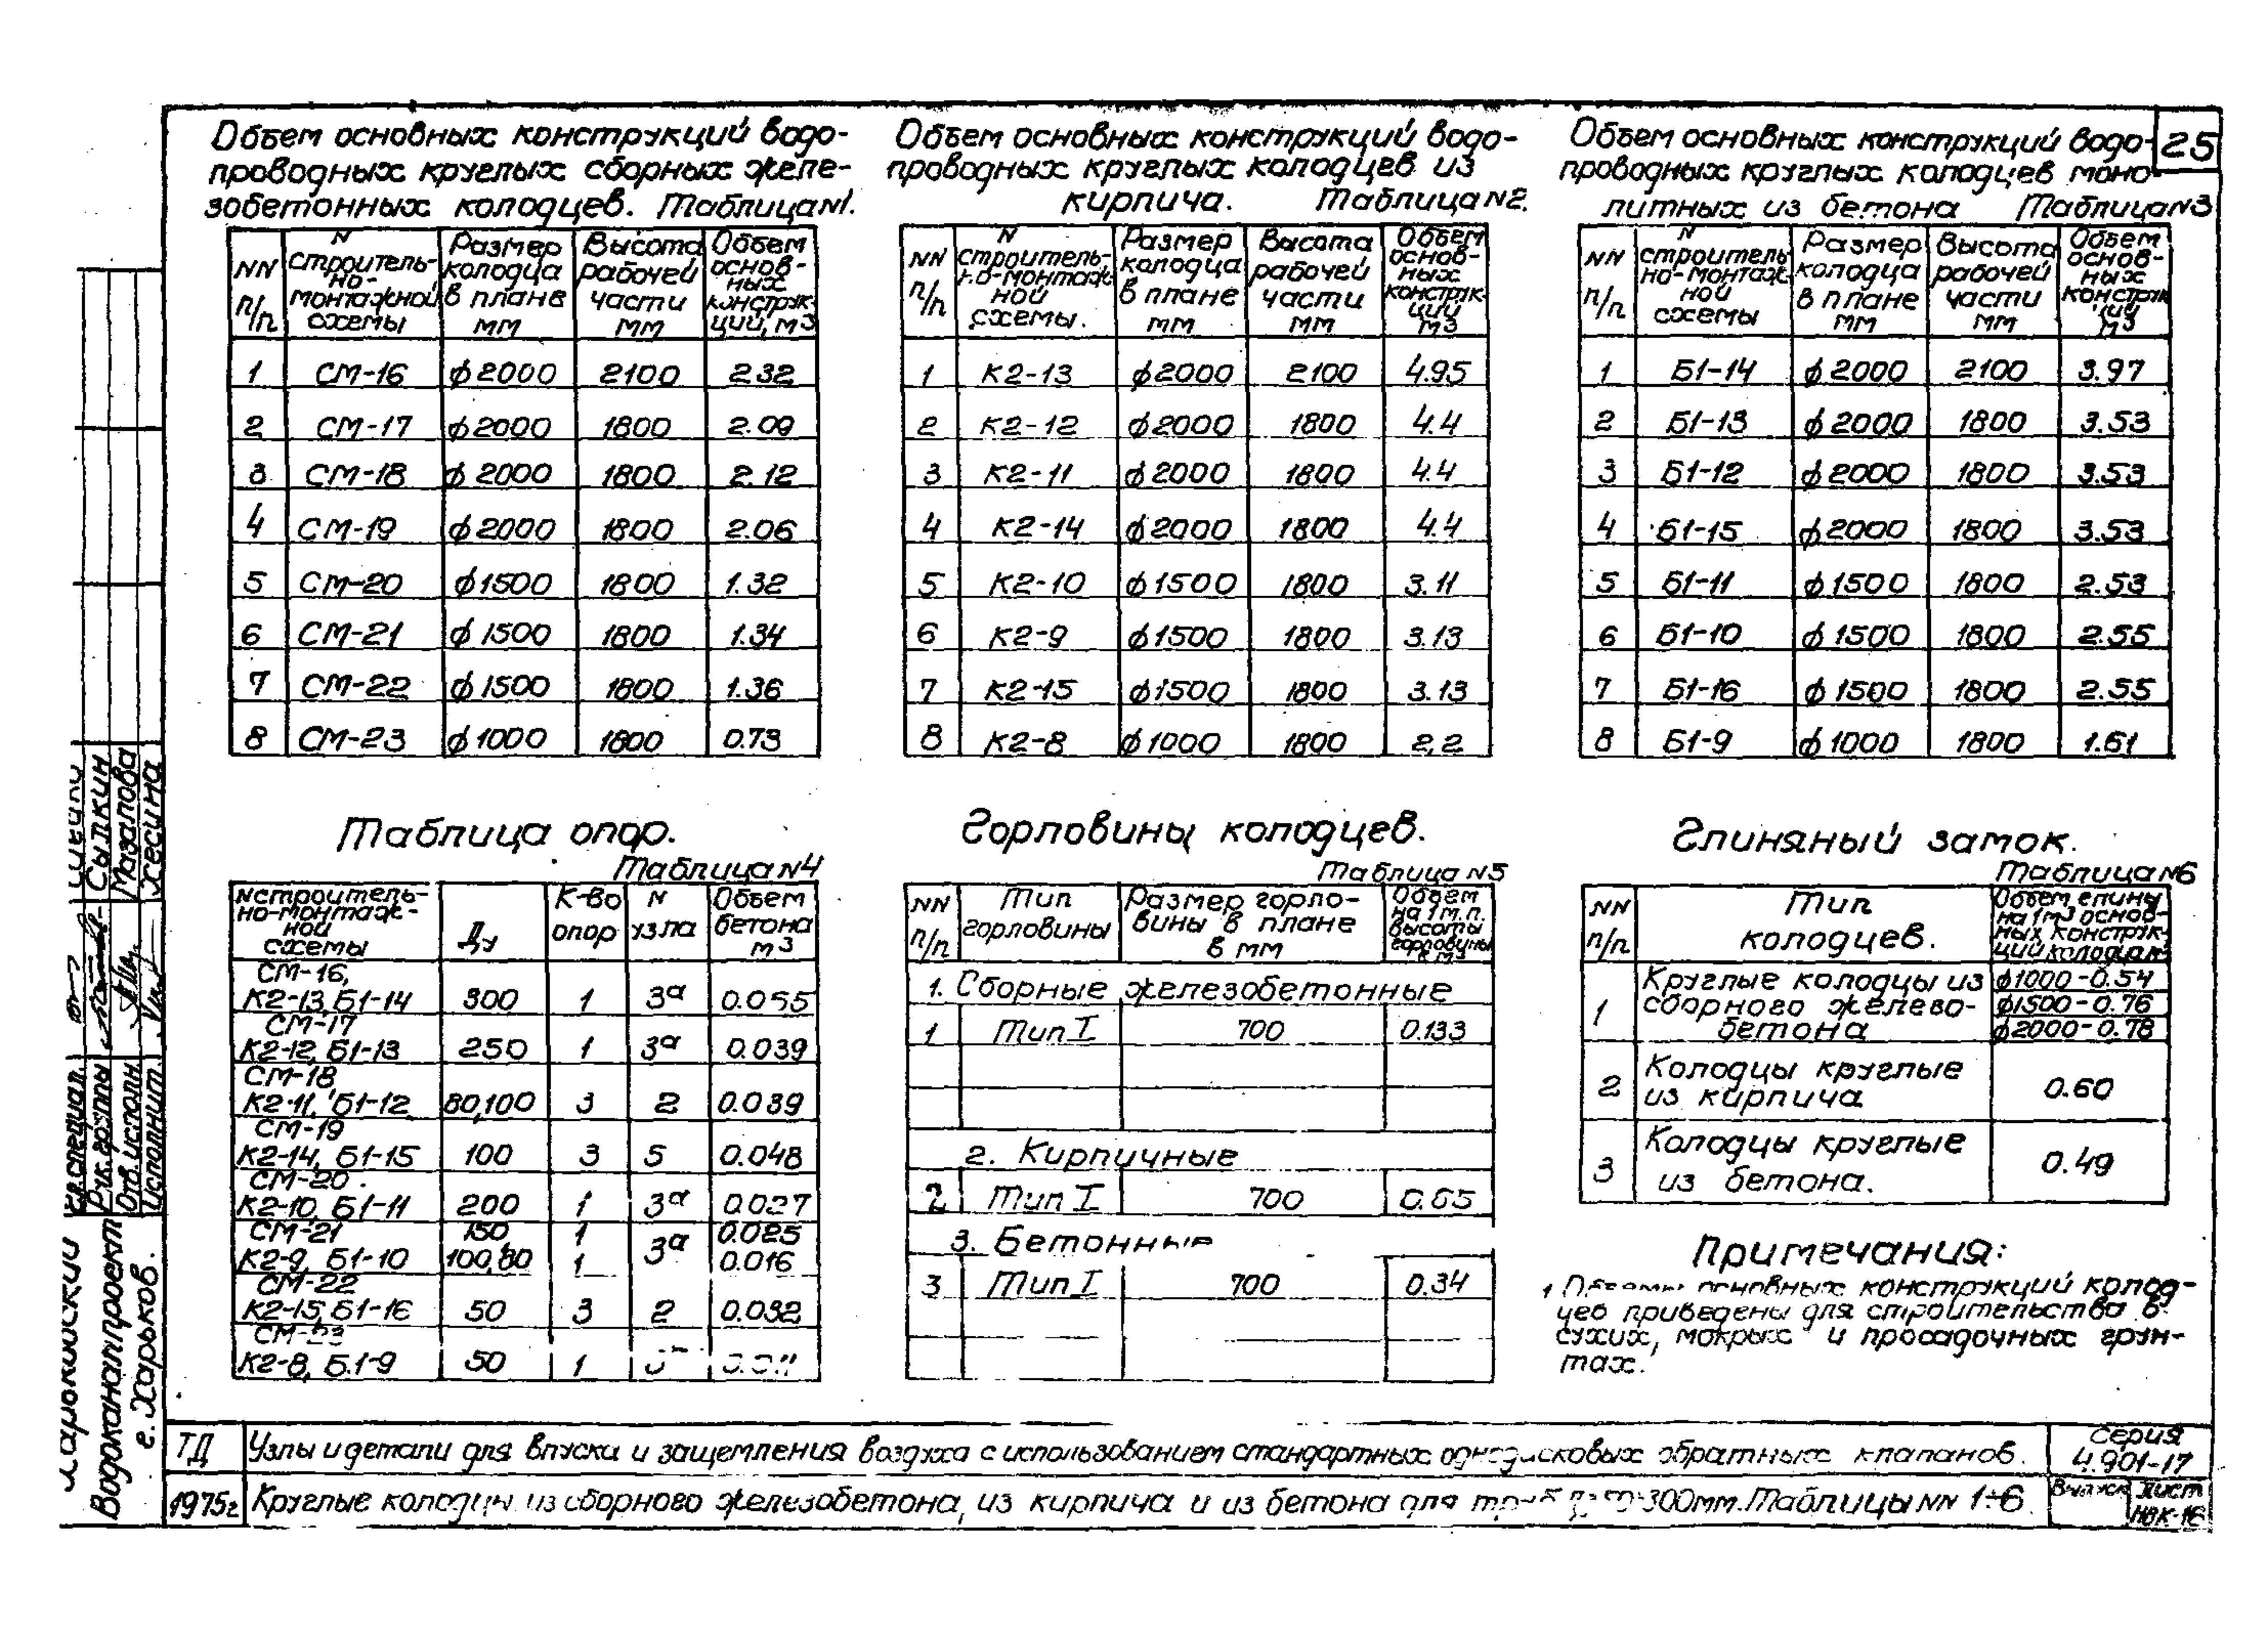 25
Объем основных конструкций водо-
проводных круглых сборных желе-
зобетонных колодцев. Таблица №1.
NN п/п | N строитель-но-монтажной схемы | Размер колодца в плане мм | Высота рабочей части мм | Объем основ-ных конструк-ций, м3
1 СМ-16 ф2000 2100 2.32
2 СМ-17 ф2000 1800 2.09
3 СМ-18 ф2000 1800 2.12
4 СМ-19 ф2000 1800 2.06
5 СМ-20 ф1500 1800 1.32
6 СМ-21 ф1500 1800 1.34
7 СМ-22 ф1500 1800 1.36
8 СМ-23 ф1000 1800 0.73
Объем основных конструкций водо-
проводных круглых колодцев из
кирпича. Таблица №2.
NN п/п | N строитель-но-монтаж-ной схемы. | Размер колодца в плане мм | Высота рабочей части мм | Объем основ-ных конструк-ций м3
1 К2-13 ф2000 2100 4.95
2 К2-12 ф2000 1800 4.4
3 К2-11 ф2000 1800 4.4
4 К2-14 ф2000 1800 4.4
5 К2-10 ф1500 1800 3.11
6 К2-9 ф1500 1800 3.13
7 К2-15 ф1500 1800 3.13
8 К2-8 ф1000 1800 2,2
Объем основных конструкций водо-
проводных круглых колодцев моно-
литных из бетона Таблица №3
NN п/п | N строитель но-монтаж-ной схемы | Размер колодца в плане мм | Высота рабочей части мм | Объем основ-ных конструк ций м3
1 Б1-14 ф2000 2100 3.97
2 Б1-13 ф2000 1800 3.53
3 Б1-12 ф2000 1800 3.53
4 Б1-15 ф2000 1800 3.53
5 Б1-11 ф1500 1800 2.53
6 Б1-10 ф1500 1800 2.55
7 Б1-16 ф1500 1800 2.55
8 Б1-9 ф1000 1800 1.61
Таблица опор.
Таблица №4
N строитель-но-монтаж-ной схемы | Ду | К-во опор | N узла | Объем бетона м3
СМ-16,
К2-13, Б1-14 300 1 3а 0.055
СМ-17
К2-12, Б1-13 250 1 3а 0.039
СМ-18,
К2-11, Б1-12 80,100 3 2 0.039
СМ-19
К2-14, Б1-15 100 3 5 0.048
СМ-20.
К2-10, Б1-11 200 1 3а 0.027
СМ-21 150, 1 0.025
К2-9, Б1-10 100,80 1 3а 0.016
СМ-22
К2-15, Б1-16 50 3 2 0.032
СМ-23
К2-8, Б.1-9 50 1
Горловины колодцев.
Таблица №5
NN п/п | Тип горловины | Размер горло-вины в плане в мм | Объем на 1 м.п. высоты горловины в м3
1. Сборные железобетонные
1 Тип I 700 0.133
2. Кирпичные
2 Тип I 700 0.65
3. Бетонные
3 Тип I 700 0.34
Глиняный замок.
Таблица №6
NN п/п | Тип колодцев. | Объем глины на 1м3 основ-ных конструк-ций колодцев
1 Круглые колодцы из сборного железо-бетона
ф1000-0.54
ф1500-0.76
ф2000-0.78
2 Колодцы круглые из кирпича 0.60
3 Колодцы круглые из бетона. 0.49
Примечания:
1. Объемы основных конструкций колод-
цев приведены для строительства в
сухих, мокрых и просадочных грун-
тах.
ТД Узлы и детали для впуска и защемления воздуха с использованием стандартных однодисковых обратных клапанов. Серия 4.901-17
1975г Круглые колодцы из сборного железобетона, из кирпича и из бетона для труб 300мм. Таблицы NN 1÷6 Выпуск Лист НВК-16
Харьковский
Водоканалпроект
г. Харьков.
Гл.специал.
Рук.группы Сылкин
Отв.исполн. Мазалова
Исполнит. Хесина